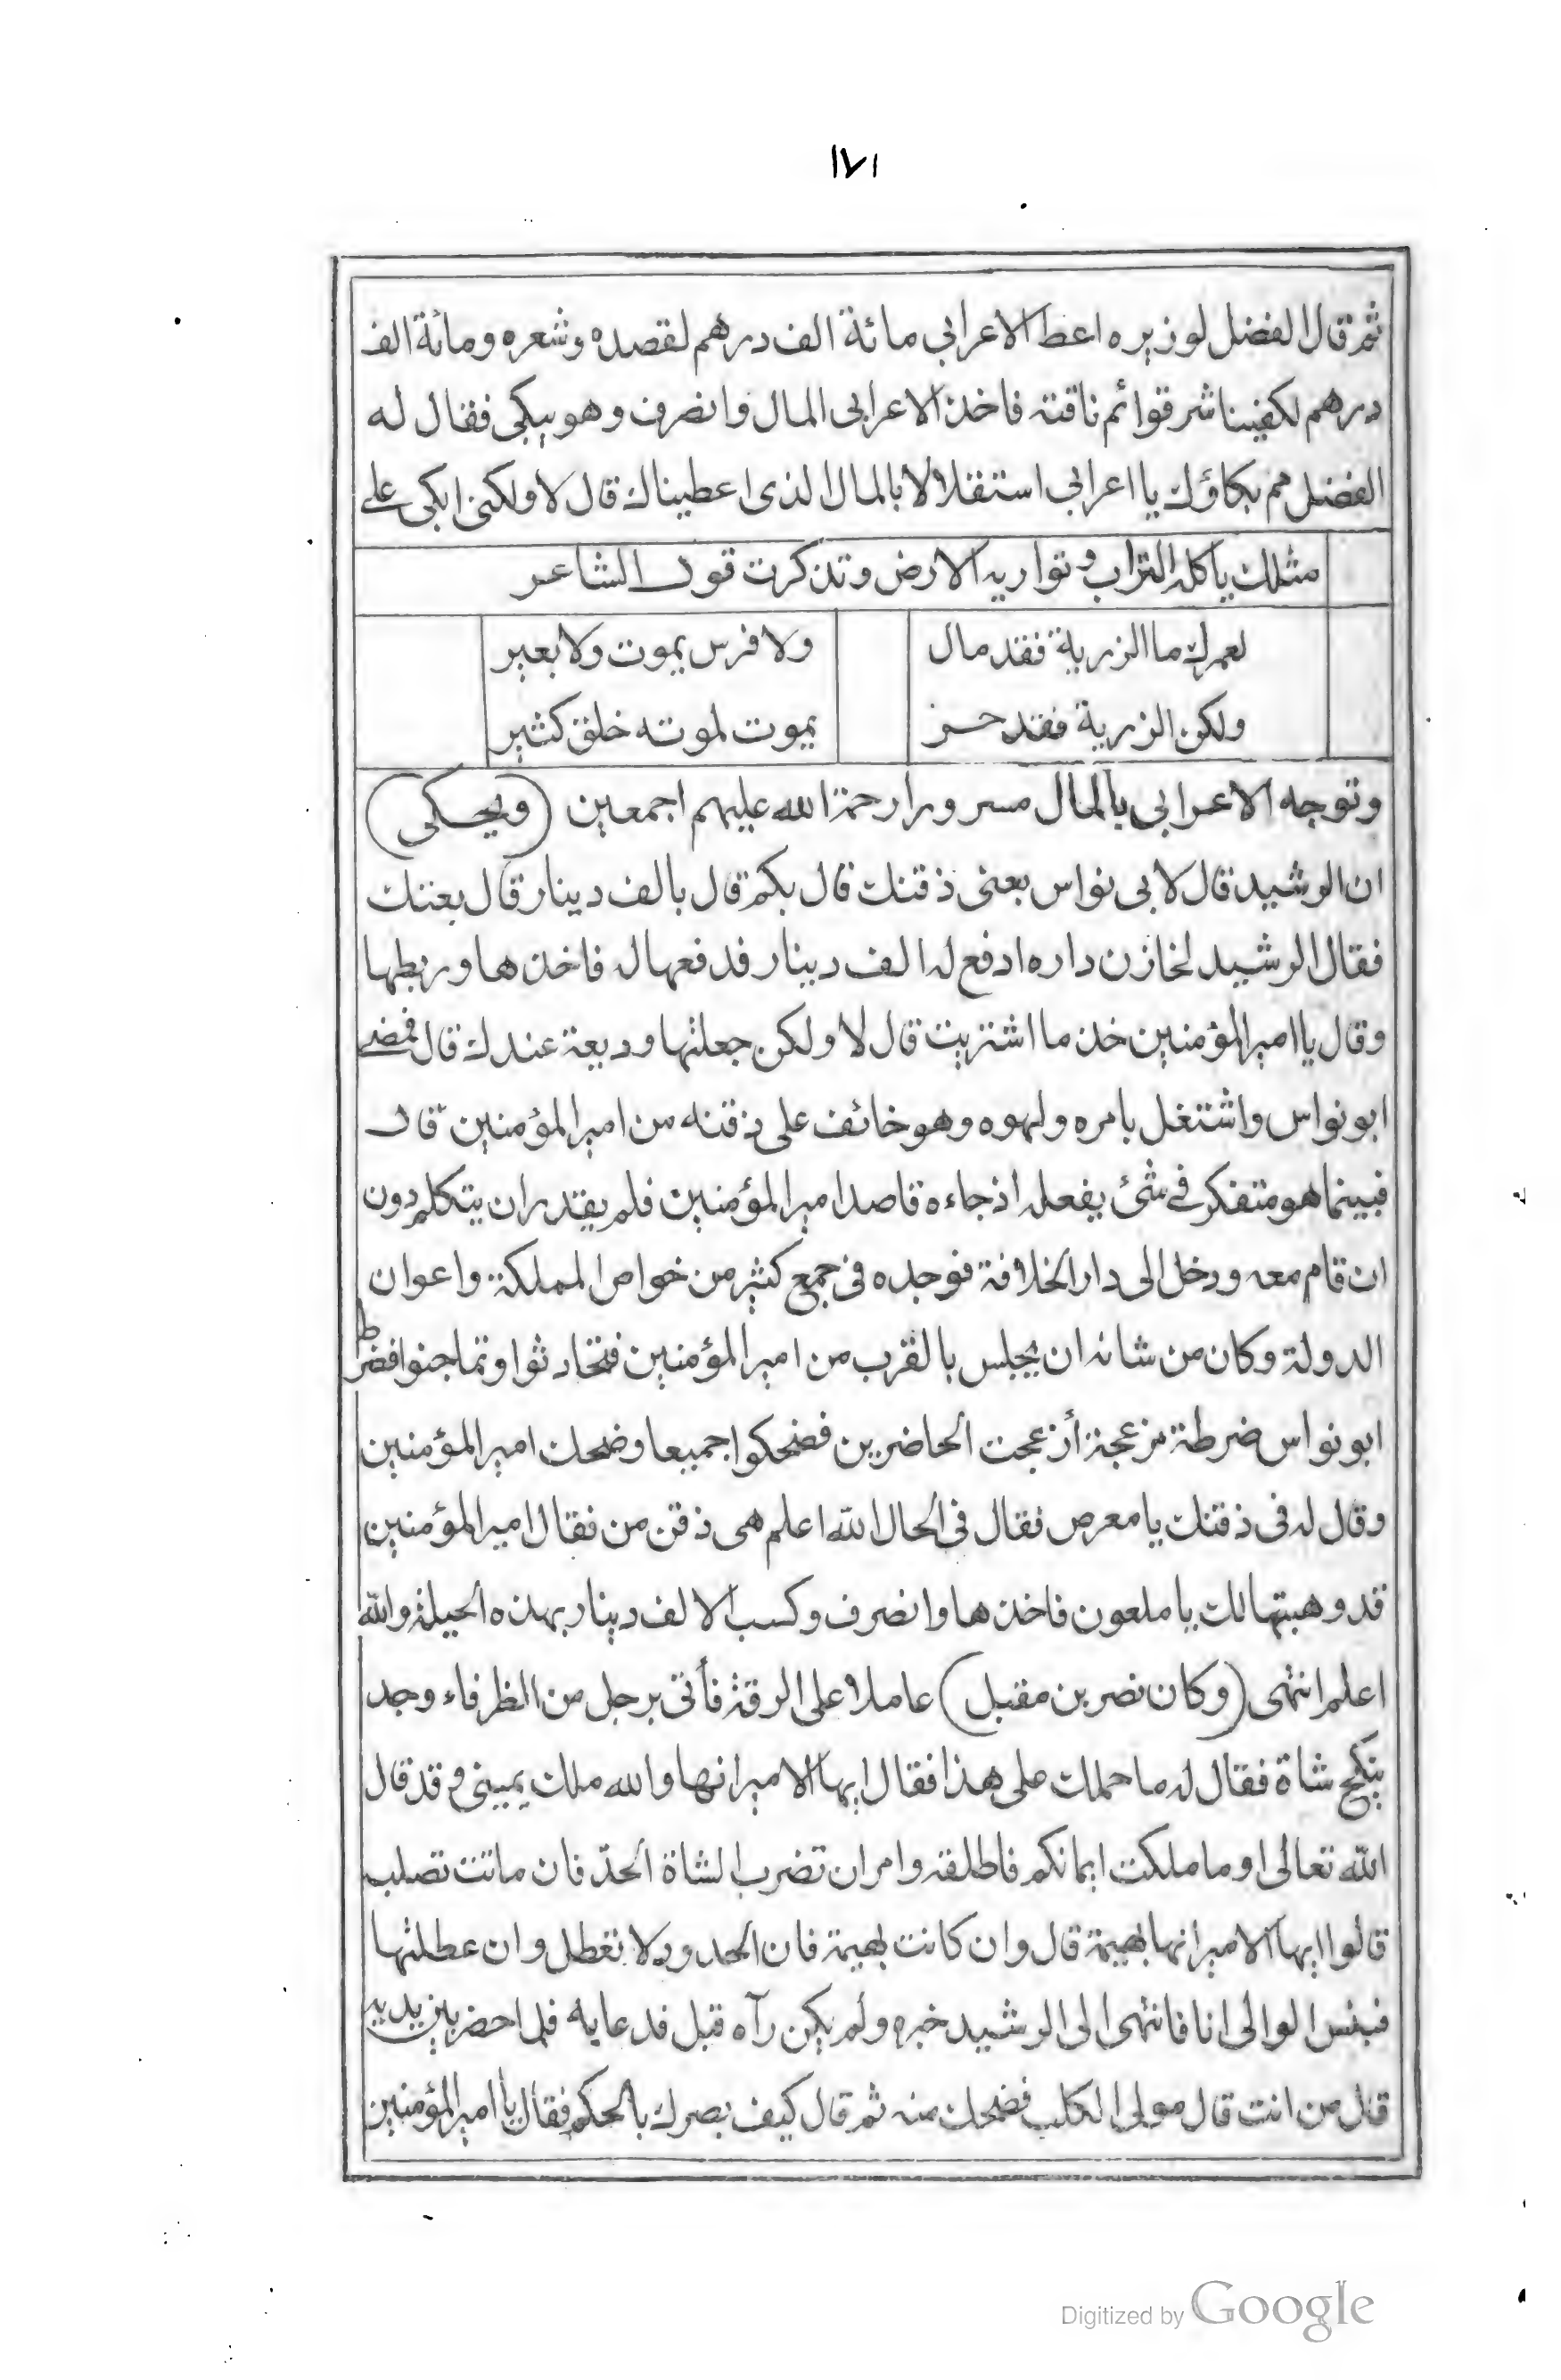 ١٧١
ثم قال الفضل لوزيره اعط الاعرابي مائة الف درهم لقصده وشعره ومائة الف
درهم لكفينا شر قوائم ناقته فاخذ الاعرابى المال وانصرف وهو يبكى فقال له
الفضل مم بكاؤك يا اعرابي استقلالا بالمال الذى اعطيناك قال لا ولكنى ابكى على
مثلك ياكله التراب وتواريه الارض وتذكرت قول الشاعر
لعمرك ما الزرية فقد مال ولا فرس يموت ولا بعير
ولكن الزرية فقد حر يموت لموته خلق كثير
وتوجه الاعرابى بالمال مسرورا رحمة الله عليهم اجمعين (ويحكى)
ان الرشيد قال لابى نواس بعنى ذقنك قال بكم قال بالف دينار قال بعتك
فقال الرشيد لخازن داره ادفع له الف دينار فدفعها له فاخذها وربطها
وقال يا امير المؤمنين خذ ما اشتريت قال لا ولكن جعلتها وديعة عندك قال فمضى
ابو نواس واشتغل بامره ولهوه وهو خائف على ذقنه من امير المؤمنين قال
فبينما هو متفكر في شئ يفعله اذ جاءه قاصد امير المؤمنين فلم يقدر ان يتكلم دون
ان قام معه ودخل الى دار الخلافة فوجده فى جمع كثير من خواص المملكة واعوان
الدولة وكان من شانه ان يجلس بالقرب من امير المؤمنين فتحادثوا وتماجنوا فضرط
ابو نواس ضرطة مزعجة أزعجت الحاضرين فضحكوا جميعا وضحك امير المؤمنين
وقال له فى ذقنك يا معرص فقال فى الحال الله اعلم هى ذقن من فقال امير المؤمنين
قد وهبتها لك يا ملعون فاخذها وانصرف وكسب الالف دينار بهذه الحيلة والله
اعلم انتهى (وكان نصر بن مقبل) عاملا على الرقة فأتى برجل من الظرفاء وجد
ينكح شاة فقال له ما حملك على هذا فقال ايها الامير انها والله ملك يمينى وقد قال
الله تعالى او ما ملكت ايمانكم فاطلقه وامر ان تضرب الشاة الحد فان ماتت تصلب
قالوا ايها الامير انها بهيمة قال وان كانت بهيمة فان الحدود لا تعطل وان عطلتها
فبئس الوالى انا فانتهى الى الرشيد خبره ولم يكن رآه قبل فدعا به فلما احضر بين يديه
قال من انت قال مولى الكلب فضحك منه ثم قال كيف بصرك بالحكم فقال يا امير المؤمنين
Digitized by Google